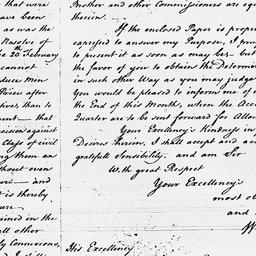 that were
been
as was the
Resolve of
20th February
cannot
duce Men
Prices after
tive, than to
ment — that
Class of civil
ng them an
thout even
ure — and
t is thereby
ure —
ained in the
ll other
ly Commissions,
Brother and other Commissioners are equ
therein.
If the enclosed Paper is proper
carefied to answer my Purpose, I pr
to present it as soon as may be — but
the favor of you to obtain the Determin
in such other Way as you may judge
You would be pleased to inform me of
the End of this Month, when the Acco
Quarter are to be sent forward for Allow
Your Excellency's Kindness in
Desires therein, I shall accept and ac
gratefull Sensibility, and am Sir
With great Respect
Your Excellency's
most ob
and
His Excellency